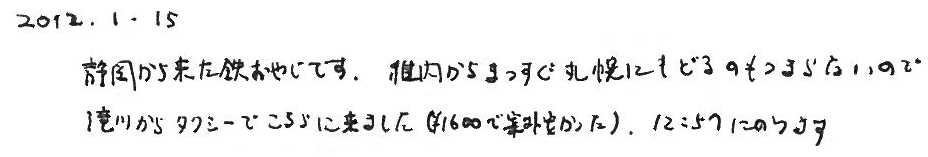 2012.1.15
静岡から来た鉄おやじです。稚内からまっすぐ札幌にもどるのもつまらないので
滝川からタクシーでこちらに来ました(¥1600で案外安かった)。12:57にのります